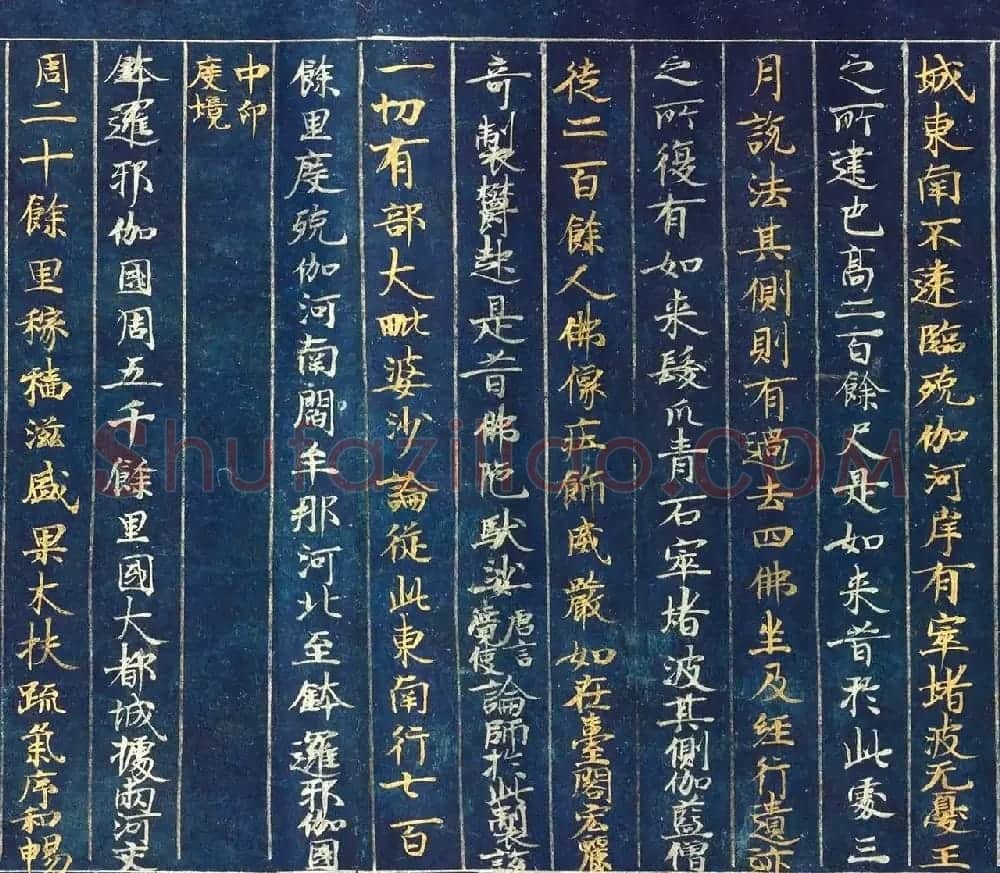 城東南不遠臨殑伽河岸有窣堵波无憂王
之所建也高二百餘尺是如来昔於此處三
月說法其側則有過去四佛坐及經行遺迹
之所復有如来髮爪青石窣堵波其側伽藍僧
徒二百餘人佛像庄飾威嚴如在臺閣宏麗
奇製欝起是昔佛陁馱娑唐言覺使論師於此製說
一切有部大毗婆沙論從此東南行七百
餘里度殑伽河南閻牟那河北至鉢邏邪伽國
中印度境
鉢邏邪伽國周五千餘里國大都城據兩河交
周二十餘里稼穡滋盛果木扶疏氣序和暢
Shufaziliao.COM